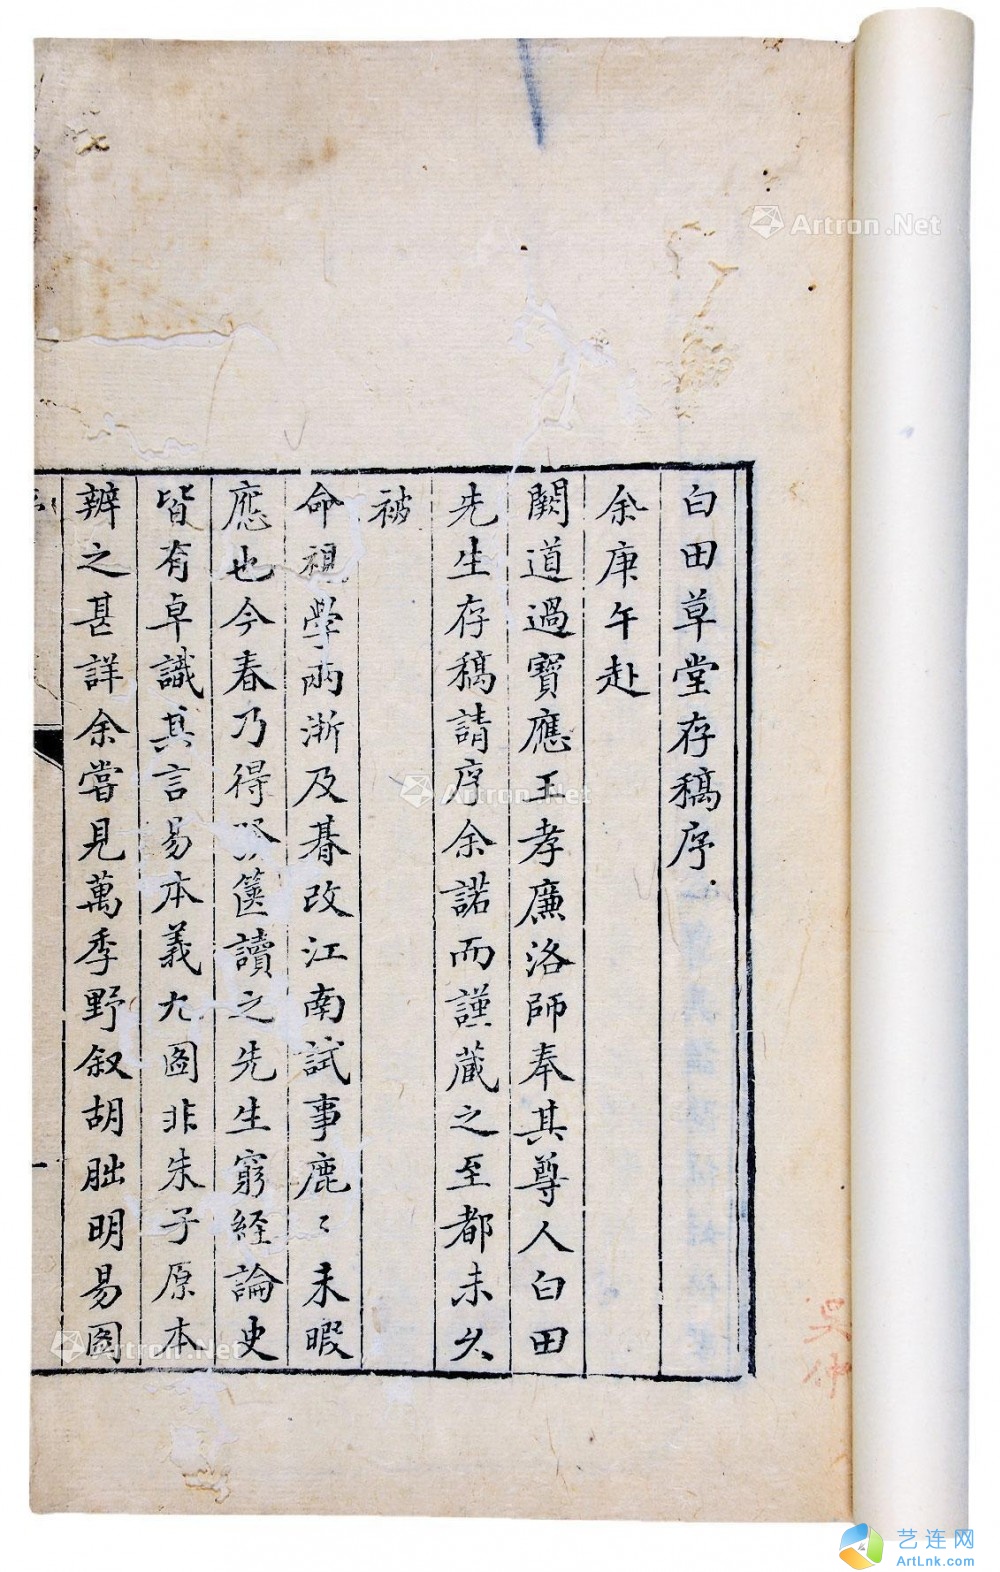 白田草堂存稿序
余庚午赴
闕道過寶應王孝廉洛師奉其尊人白田
先生存稿請序余諾而謹藏之至都未久
被
命視學兩浙及朞改江南試事鹿〻未暇
應也今春乃得發篋讀之先生窮經論史
皆有卓識其言易本義九圖非朱子原本
辨之甚詳余嘗見萬季野叙胡朏明易圖
Artron.Net
Artron.Net
Artron.Net
艺连网
ArtLnk.com